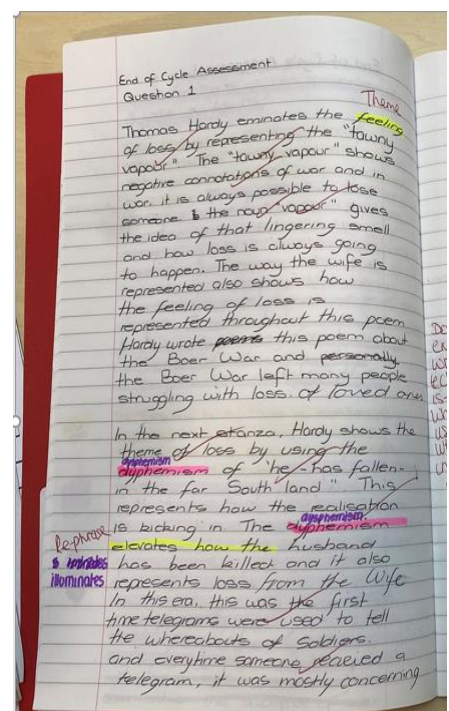 End of Cycle Assessment
Question 1
Theme
Thomas Hardy eminates the feeling
of loss by representing the "towny
vapour". The "towny vapour" shows
negative connotations of war and in
war it is always possible to lose
someone & the noun "vapour" gives
the idea of that lingering smell
and how loss is always going
to happen. The way the wife is
represented also shows how
the feeling of loss is
represented throughout this poem
Hardy wrote poems this poem about
the Boer War and personally
the Boer War left many people
struggling with loss of loved ones
In the next stanza, Hardy shows the
theme of loss by using the
dysphemism
dyphemism of "he - has fallen -
in the far South land". This
represents how the realisation
dysphemism
is kicking in. The dyphemism
Rephrase
elevates how the husband
illuminates has been killed and it also
represents loss from the Wife
In this era, this was the first
time telegrams were used to tell
the whereabouts of soldiers.
and everytime someone recieved a
telegram, it was mostly concerning